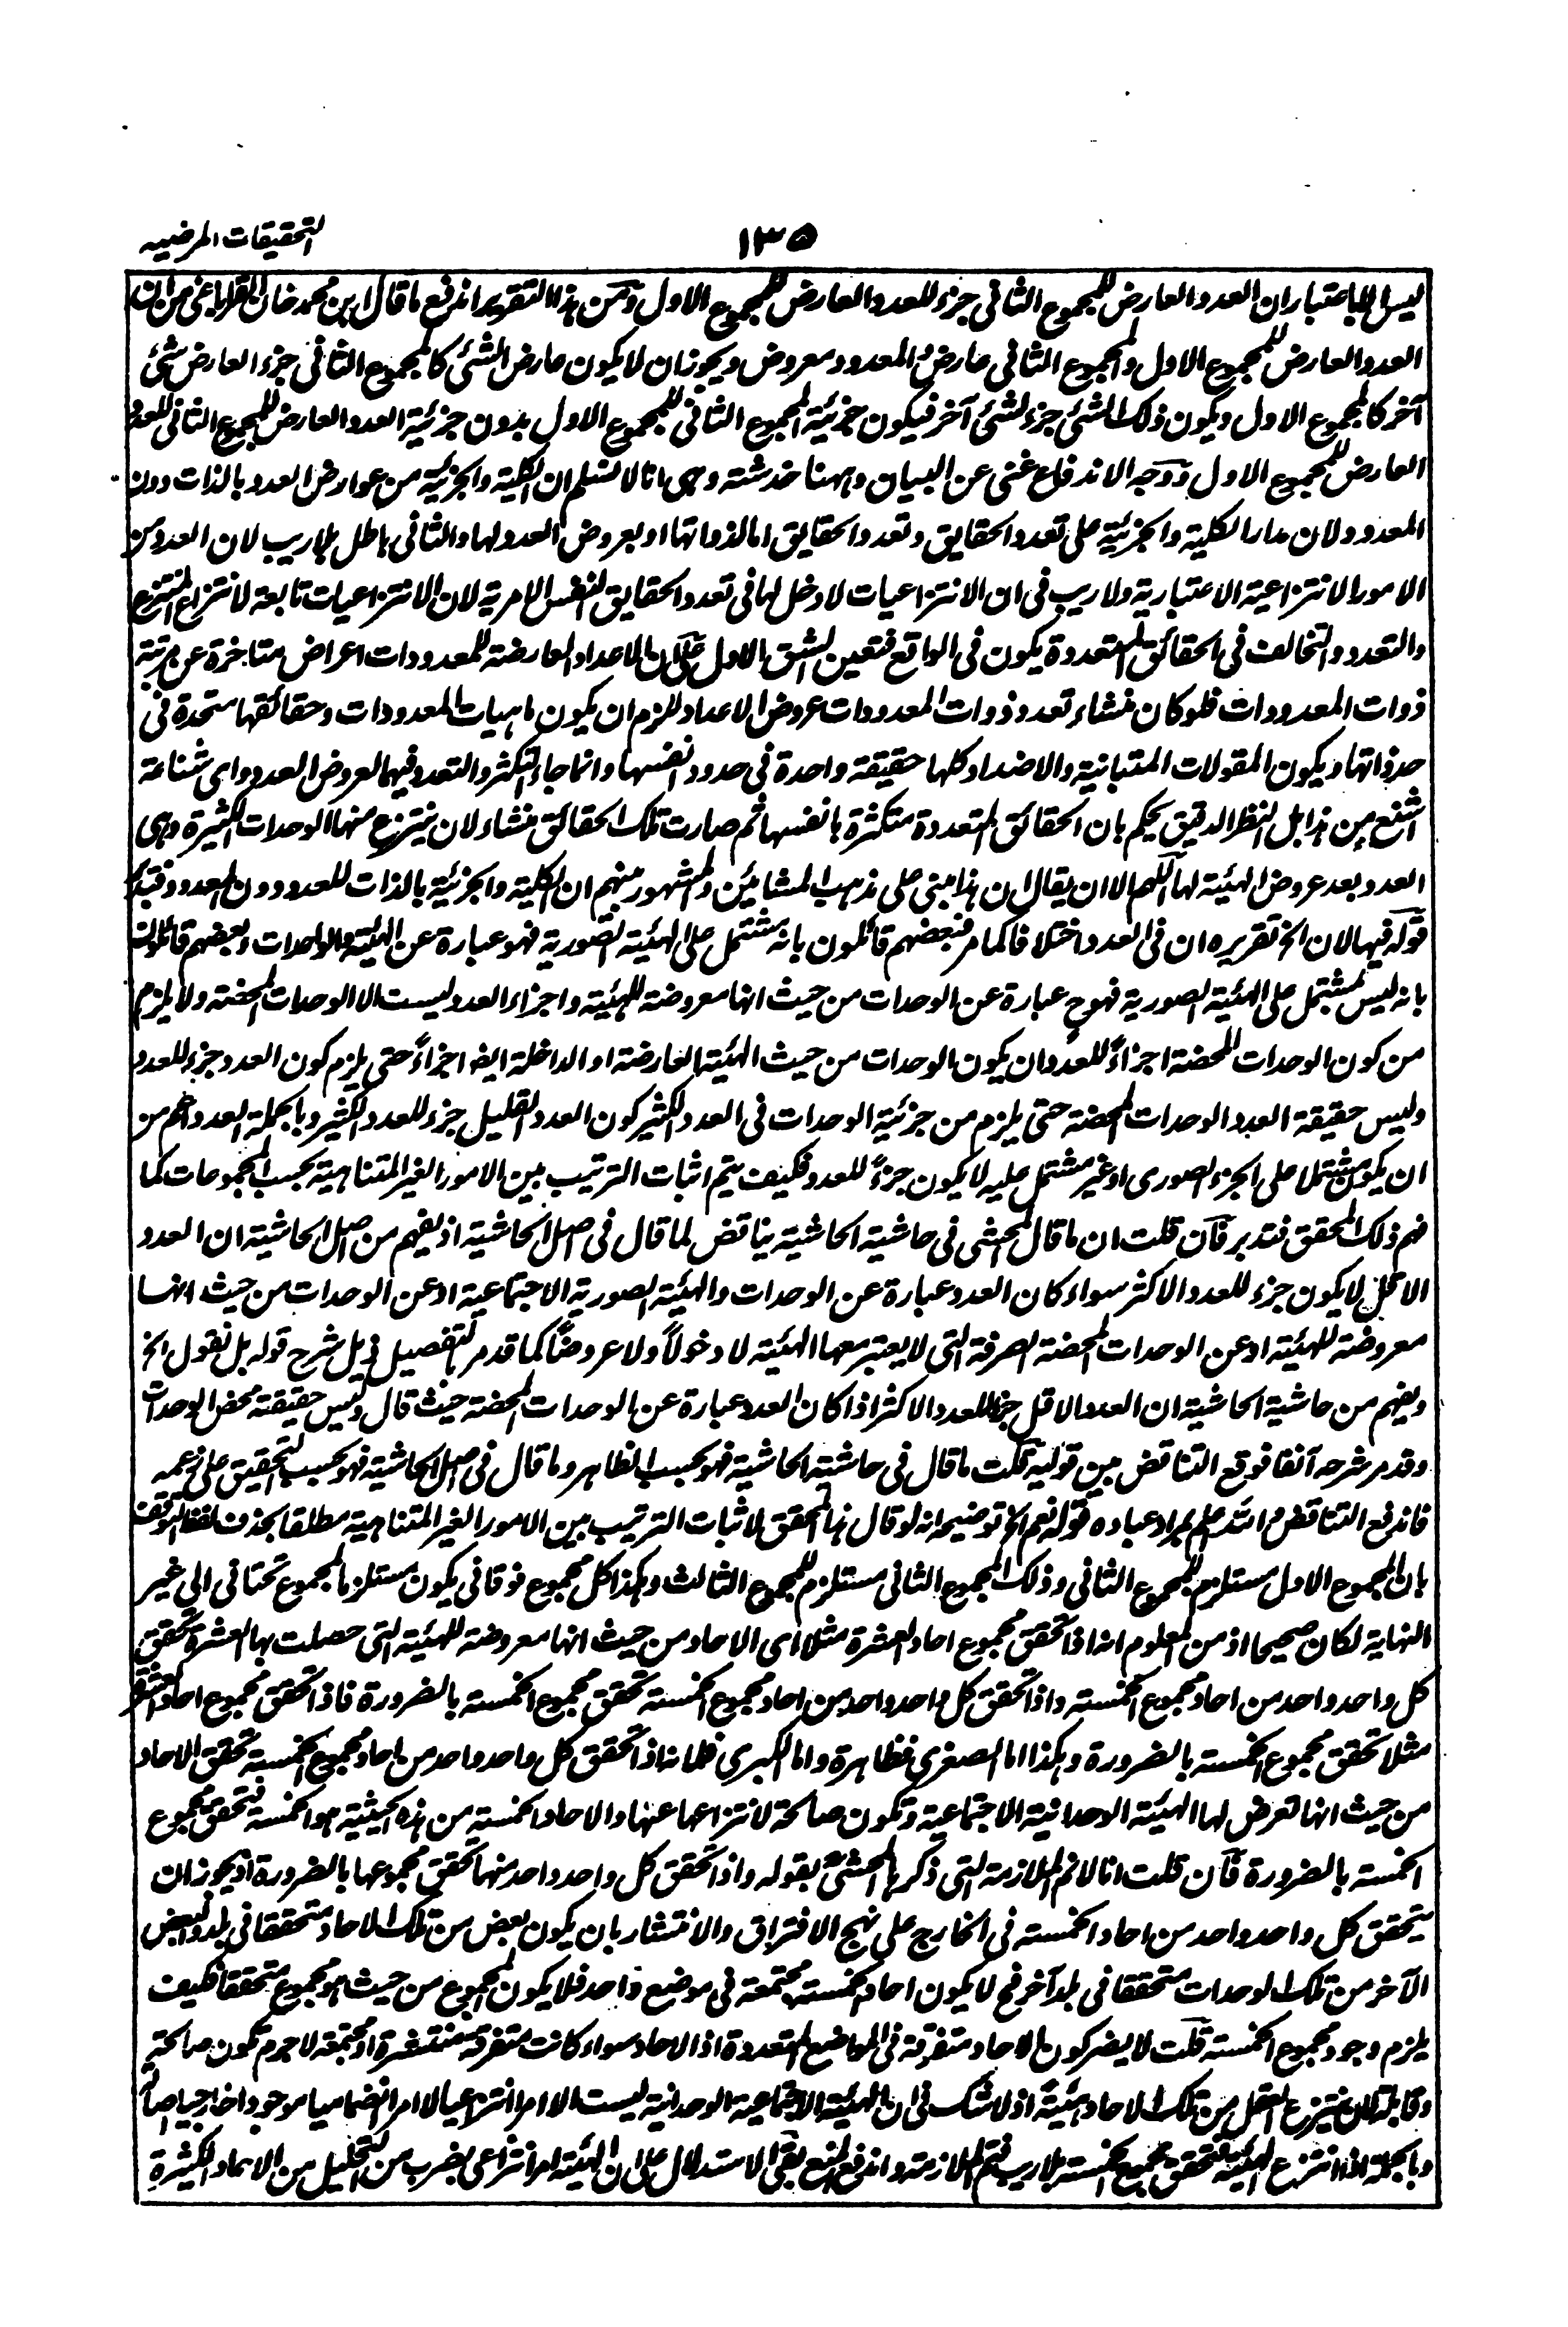 التحقيقات المرضيه
١٣٥
ليس الا باعتبار ان العدد العارض للمجموع الثانى جزء للعدد العارض للمجموع الاول ومن هذا التقرير اندفع ما قال ابن محمد خان القراباغى من ان
العدد العارض للمجموع الاول والمجموع الثانى عارض والمعدود معروض ويجوز ان لا يكون عارض الشئ كالمجموع الثانى جزء العارض شئ
آخر كالمجموع الاول ويكون ذلك الشئ جزء لشئ آخر فيكون جزئية المجموع الثانى للمجموع الاول بدون جزئية العدد العارض للمجموع الثانى للعدد
العارض للمجموع الاول ووجه الاندفاع غنى عن البيان وههنا خدشته وهى انا لا نسلم ان الكلية والجزئية من عوارض العدد بالذات دون
المعدود ولان مدار الكلية والجزئية على تعدد الحقايق وتعدد الحقايق اما لذواتها او بعروض العدد لها والثانى باطل بلا ريب لان العدد من
الامور الانتزاعية الاعتبارية ولا ريب فى ان الانتزاعيات لا دخل لها فى تعدد الحقايق النفس الامرية لان الانتزاعيات تابعة لانتزاع المنتزع
والتعدد والتخالف فى الحقائق المتعددة يكون فى الواقع فتعين الشق الاول على ان الاعداد العارضة للمعدودات اعراض متاخرة عن مرتبة
ذوات المعدودات فلو كان منشاء تعدد ذوات المعدودات عروض الاعداد للزم ان يكون ماهيات المعدودات وحقائقها متحدة فى
حد ذاتها ويكون المقولات المتبانية والاضداد كلها حقيقته واحدة فى حدود انفسها وانما جاء التكثر والتعدد فيهما لعروض العدد واى شناعة
اشنع من هذا بل النظر الدقيق يحكم بان الحقائق المتعددة متكثرة بانفسها ثم صارت تلك الحقائق منشاء لان ينتزع منها الوحدات الكثيرة وهى
العدد بعد عروض الهيئة لها اللهم الا ان يقال ان هذا مبنى على مذهب المشائين والمشهور منهم ان الكلية والجزئية بالذات للعدد دون المعدود فتدبر
قوله فيها لان الخ تقريره ان فى العدد اختلافا كما مر فبعضهم قائلون بانه مشتمل على الهيئة الصورية فهو عبارة عن الهيئة والواحدات وبعضهم قائلون
بانه ليس بمشتمل على الهيئة الصورية فهو ح عبارة عن الوحدات من حيث انها معروضة للهيئة واجزاء العدد ليست الا الوحدات المحضة ولا يلزم
من كون الوحدات المحضة اجزاءً للعدد ان يكون الوحدات من حيث الهيئة العارضة او الداخلة ايضا اجزاءً حتى يلزم كون العدد جزء للعدد
وليس حقيقة العدد الوحدات المحضة حتى يلزم من جزئية الوحدات فى العدد الكثير كون العدد القليل جزء للعدد الكثير وبالجملة العدد اعم من
ان يكون مشتملا على الجزء الصورى او غير مشتمل عليه لا يكون جزءً للعدد فكيف يتم اثبات الترتيب بين الامور الغير المتناهية بحسب المجموعات كما
فهم ذلك المحقق فتدبر فان قلت ان ما قال المحشى فى حاشية الحاشية يناقض لما قال فى اصل الحاشية اذ يفهم من اصل الحاشية ان العدد
الاقل لا يكون جزء للعدد الاكثر سواء كان العدد عبارة عن الوحدات والهيئة الصورية الاجتماعية او عن الوحدات من حيث انها
معروضة للهيئة او عن الوحدات المحضة الصرفة التى لا يعتبر معها الهيئة لا دخولاً ولا عروضًا كما قد مر التفصيل فى ذيل شرح قوله بل نقول الخ
ويفهم من حاشية الحاشية ان العدد الاقل جزء للعدد الاكثر اذا كان العدد عبارة عن الوحدات المحضة حيث قال وليس حقيقته محض الوحدات
وقد مر شرحه آنفا فوقع التناقض بين قوليه قلت ما قال فى حاشية الحاشية فهو بحسب الظاهر وما قال فى اصل الحاشية فهو بحسب التحقيق على زعمه
فاندفع التناقض والله اعلم بمراد عباده قوله نعم الخ توضيحه انه لو قال هذا المحقق لاثبات الترتيب بين الامور الغير المتناهية مطلقا بحذف لفظ التوقف
بان المجموع الاول مستلزم للمجموع الثانى وذلك المجموع الثانى مستلزم للمجموع الثالث وهكذا كل مجموع فوقانى يكون مستلزما لمجموع تحتانى الى غير
النهاية لكان صحيحا اذ من المعلوم انه اذا تحقق مجموع احاد العشرة مثلا اى الاحاد من حيث انها معروضة للهيئة التى حصلت بها العشرة تحقق
كل واحد واحد من احاد مجموع الخمسته واذا تحقق كل واحد واحد من احاد مجموع الخمسته تحقق مجموع الخمسته بالضرورة فاذا تحقق مجموع احاد العشرة
مثلا تحقق مجموع الخمسته بالضرورة وهكذا اما الصغرى فظاهرة واما الكبرى فلانه اذا تحقق كل واحد واحد من احاد مجموع الخمسته تحقق الاحاد
من حيث انها تعرض لها الهيئة الوحدانية الاجتماعية وتكون صالحة لانتزاعها عنها والاحاد الخمسته من هذه الحيثية هو الخمسته فتحقق مجموع
الخمسته بالضرورة فان قلت انا لا نم الملازمة التى ذكرها المحشى بقوله واذا تحقق كل واحد واحد منها تحقق مجموعها بالضرورة اذ يجوز ان
يتحقق كل واحد واحد من احاد الخمسته فى الخارج على نهج الافتراق والانتشار بان يكون بعض من تلك الاحاد متحققا فى بلد والبعض
الآخر من تلك الوحدات متحققا فى بلد آخر فح لا يكون احاد الخمسته مجتمعة فى موضع واحد فلا يكون المجموع من حيث هو مجموع متحققا فكيف
يلزم وجود مجموع الخمسته قلت لا يضر كون الاحاد متفرقة فى المواضع المتعددة اذ الاحاد سواء كانت متفرقة منتشرة او مجتمعة لا جرم تكون صالحة
وقابلة لان ينتزع العقل من تلك الاحاد هيئة اذ لا شك فى ان الهيئة الاجتماعية الوحدانية ليست الا امرا انتزاعيا لا امرا انضماميا موجودا خارجيا اصالة
وبالجملة اذا انتزع الهيئة فتحقق مجموع الخمسته بلا ريب فتم الملازمة واندفع المنع بقى الاستدلال على ان الهيئة امر انتزاعى بضرب من التحليل من الاحاد الكثيرة